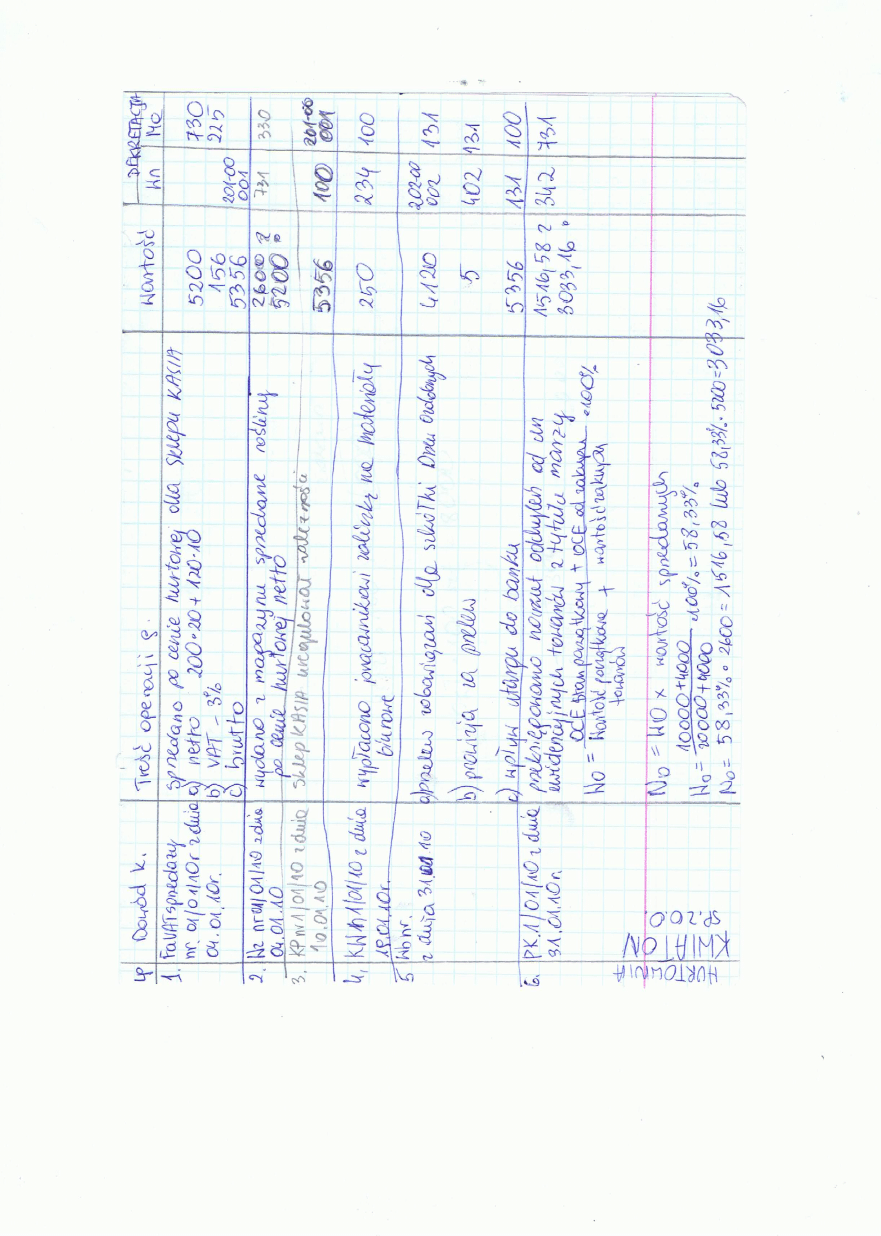 Lp Dowód k. Treść operacji g. Wartość DEKRETACJA
Wn Ma
1. FaVATsprzedaży nr. 01/01/10r z dnia 04.01.10r.
sprzedano po cenie hurtowej dla sklepu KASIA
a) netto 200·20 + 120·10 5200 730
b) VAT – 3% 156 225
c) brutto 5356 201-00 001
2. Wz nr 01/01/10 z dnia 04.01.10
wydano z magazynu sprzedane rośliny 2600 z 731 330
po cenie hurtowej netto 5200
3. KP nr 1/01/10 z dnia 10.01.10
sklep KASIA uregulował należności 5356 100 201-00 001
4. KW nr 1/01/10 z dnia 19.01.10r.
wypłacono pracownikowi zaliczkę na materiały 250 234 100
biurowe.
5 Wb nr.
z dnia 31.01 10
a) przelew zobowiązań dla szkółki Drzew Ozdobnych 4120 202-00 002 131
b) prowizja za przelew 5 402 131
c) wpływ utargu do banku 5356 131 100
6. PK.1/01/10 z dnia 31.01.10r.
przeksięgowano narzut odchyleń od cen 1516,58 z 342 731
ewidencyjnych towarów z tytułu marży 3033,16
WO = OCE stan początkowy + OCE od zakupu · 100%
Wartość początkowa + wartość zakupu
towarów
No = WO x wartość sprzedanych
Wo = 10000+4000 · 100% = 58,33%
20000+4000
No = 58,33% · 2600 = 1516,58 lub 58,33% · 5200 = 3033,16
HURTOWNIA
KWIATON
SP. Z O.O.